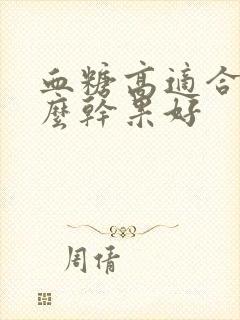 血糖高適合
麼幹果好
周倩